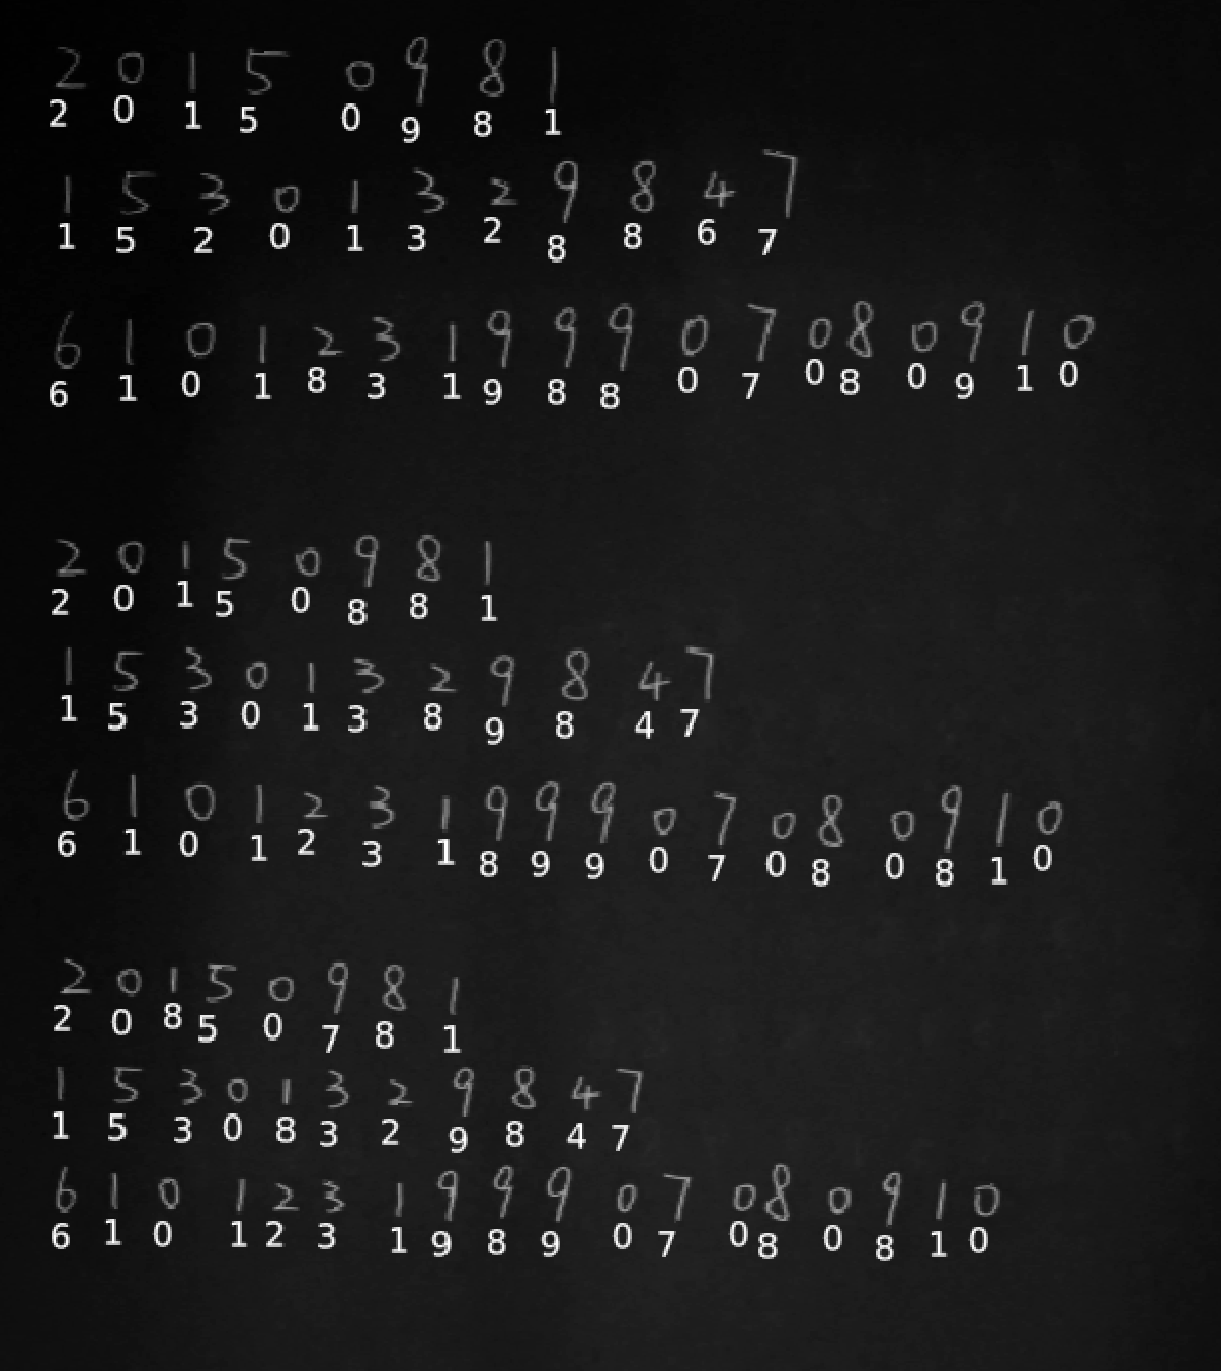 2 0 1 5 0 9 8 1
2 0 1 5 0 9 8 1
1 5 3 0 1 3 2 9 8 4 7
1 5 2 0 1 3 2 8 8 6 7
6 1 0 1 2 3 1 9 9 9 0 7 0 8 0 9 1 0
6 1 0 1 8 3 1 9 8 8 0 7 0 8 0 9 1 0
2 0 1 5 0 9 8 1
2 0 1 5 0 8 8 1
1 5 3 0 1 3 2 9 8 4 7
1 5 3 0 1 3 8 9 8 4 7
6 1 0 1 2 3 1 9 9 9 0 7 0 8 0 9 1 0
6 1 0 1 2 3 1 8 9 9 0 7 0 8 0 8 1 0
2 0 1 5 0 9 8 1
2 0 8 5 0 7 8 1
1 5 3 0 1 3 2 9 8 4 7
1 5 3 0 8 3 2 9 8 4 7
6 1 0 1 2 3 1 9 9 9 0 7 0 8 0 9 1 0
6 1 0 1 2 3 1 9 8 9 0 7 0 8 0 8 1 0